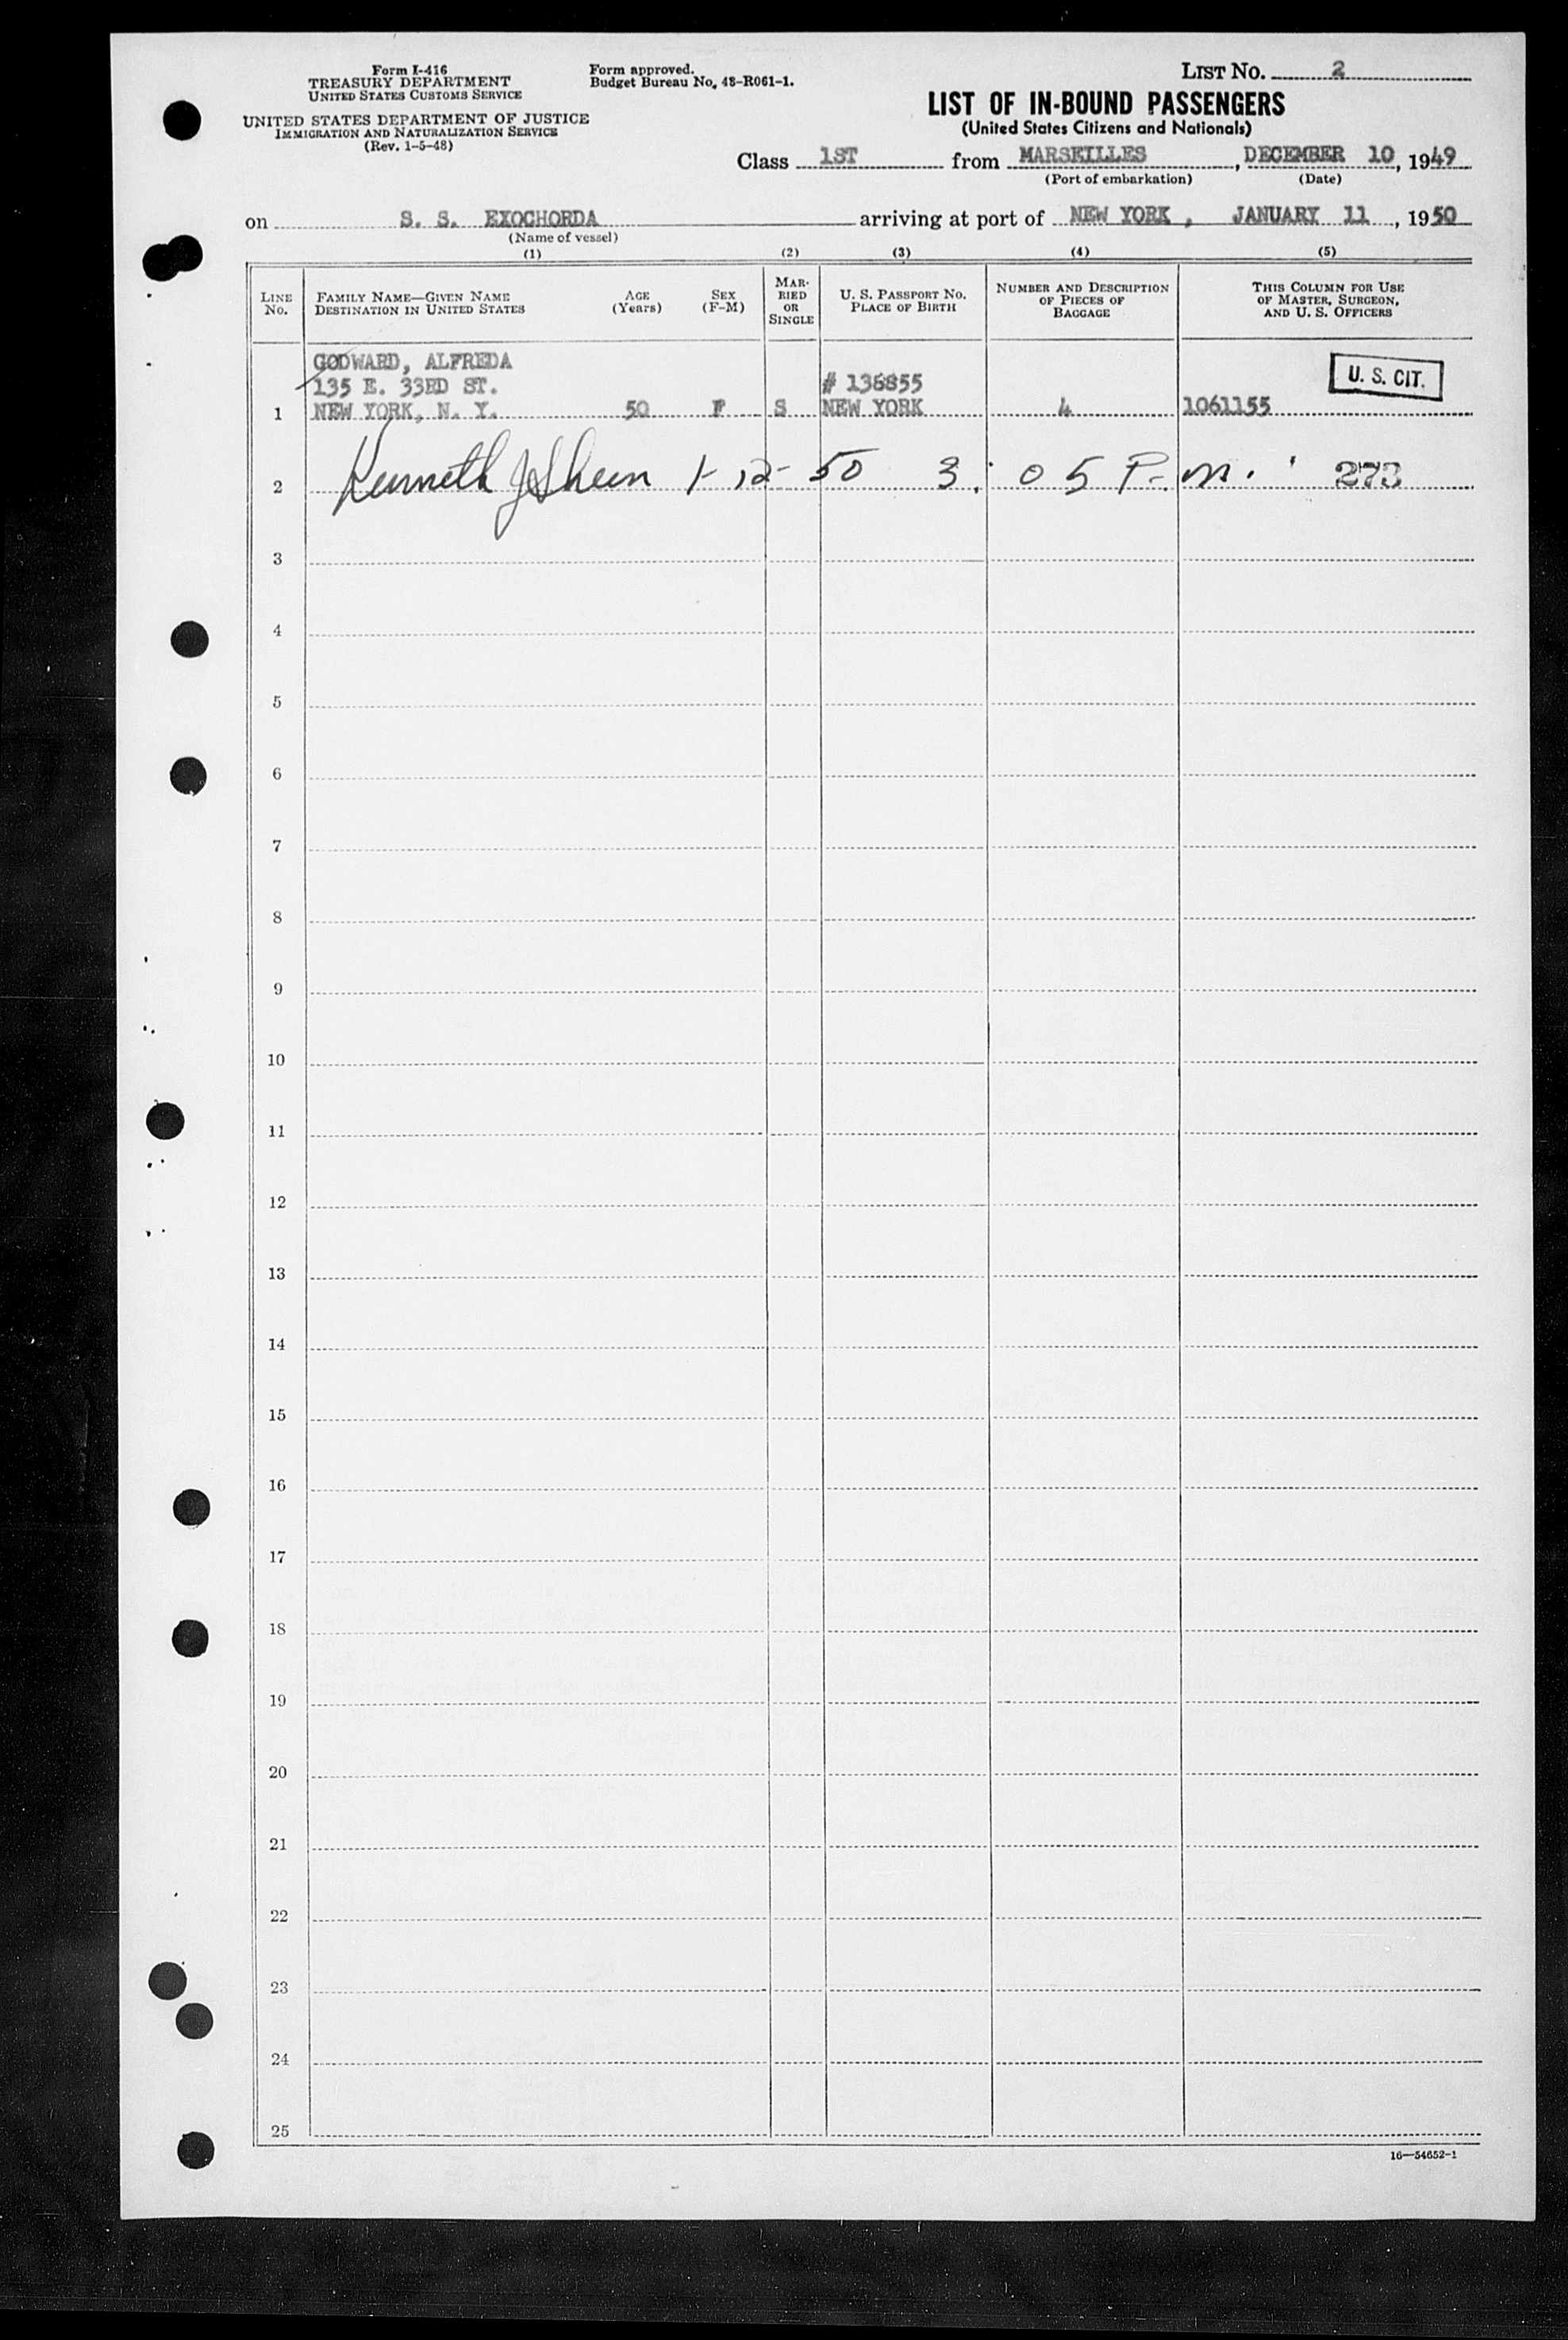 Form I-416
TREASURY DEPARTMENT
UNITED STATES CUSTOMS SERVICE
UNITED STATES DEPARTMENT OF JUSTICE
IMMIGRATION AND NATURALIZATION SERVICE
(Rev. 1-5-48)
Form approved.
Budget Bureau No. 43-R061-1.
LIST NO. 2
LIST OF IN-BOUND PASSENGERS
(United States Citizens and Nationals)
Class 1ST from MARSEILLES, DECEMBER 10, 1949
(Port of embarkation) (Date)
on S. S. EXOCHORDA arriving at port of NEW YORK, JANUARY 11, 1950
(Name of vessel)
(1) (2) (3) (4) (5)
LINE NO. FAMILY NAME—GIVEN NAME DESTINATION IN UNITED STATES AGE (Years) SEX (F-M) MARRIED OR SINGLE U. S. PASSPORT NO. PLACE OF BIRTH NUMBER AND DESCRIPTION OF PIECES OF BAGGAGE THIS COLUMN FOR USE OF MASTER, SURGEON, AND U. S. OFFICERS
GODWARD, ALFREDA
135 E. 33RD ST. # 136855 U. S. CIT.
1 NEW YORK, N. Y. 50 F S NEW YORK 4 1061155
2 Kenneth J Sheen 1-12-50 3:05 P.m. 273
3
4
5
6
7
8
9
10
11
12
13
14
15
16
17
18
19
20
21
22
23
24
25
16—54652-1